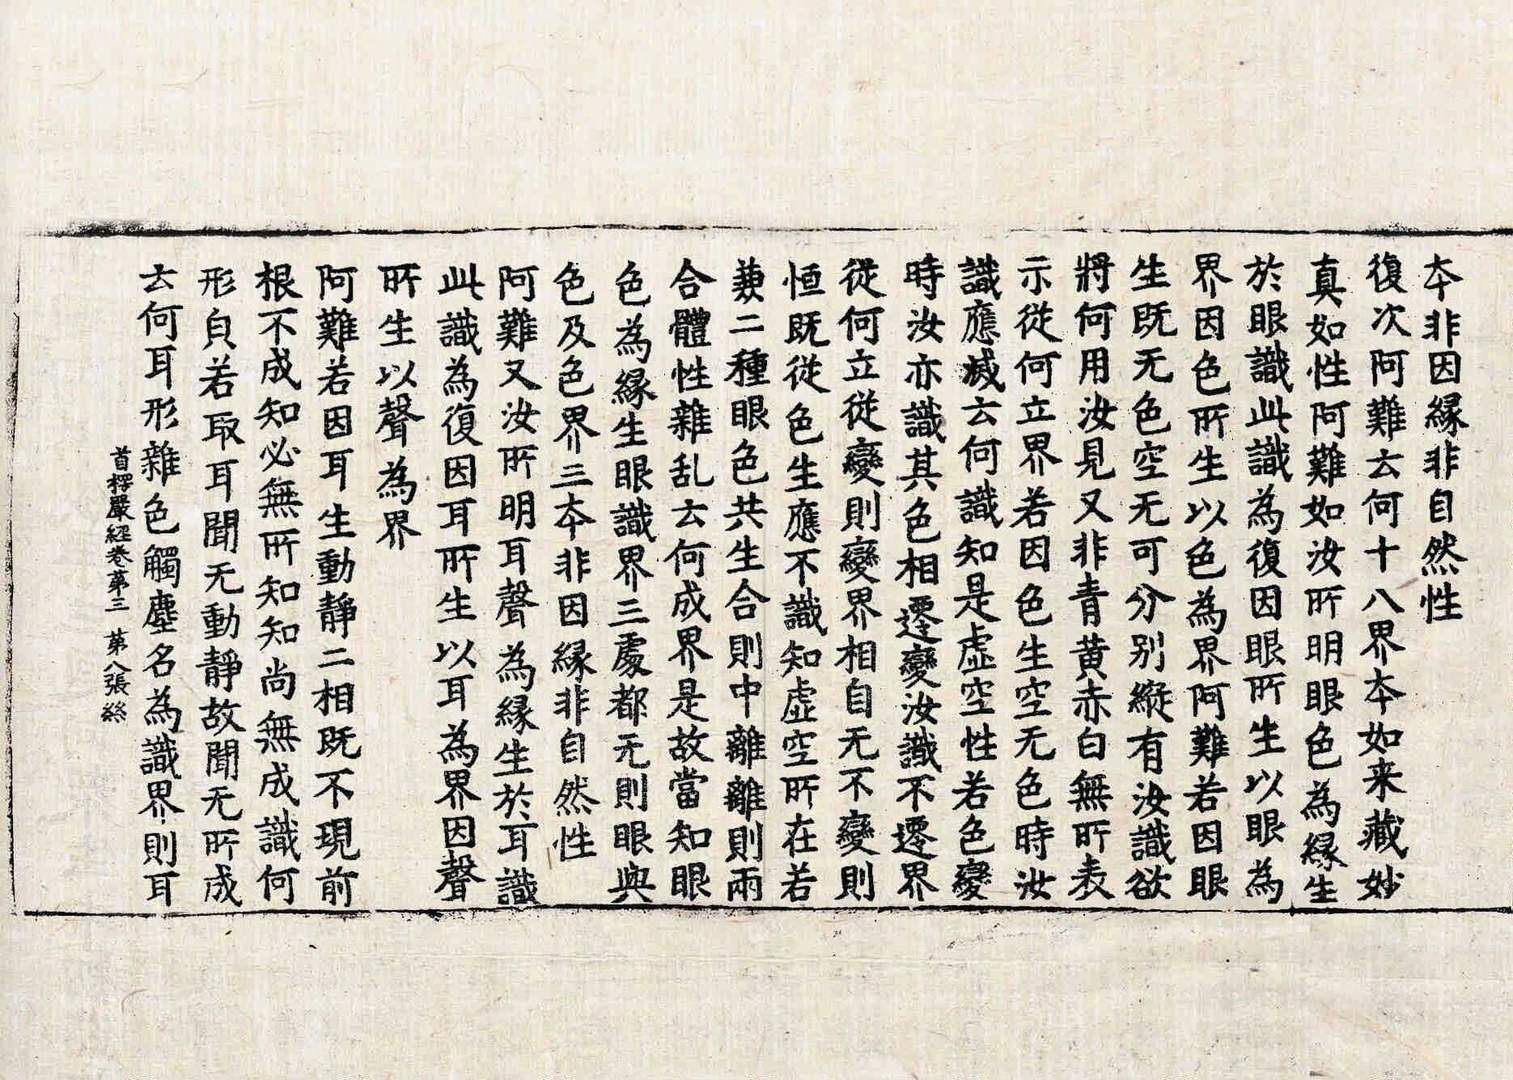 本非因縁非自然性
復次阿難云何十八界本如来藏妙
真如性阿難如汝所明眼色為縁生
於眼識此識為復因眼所生以眼為
界因色所生以色為界阿難若因眼
生既无色空无可分别縦有汝識欲
將何用汝見又非青黄赤白無所表
示從何立界若因色生空无色時汝
識應滅云何識知是虚空性若色變
時汝亦識其色相遷變汝識不遷界
從何立從變則變界相自无不變則
恒既從色生應不識知虚空所在若
兼二種眼色共生合則中離離則兩
合體性雜乱云何成界是故當知眼
色為縁生眼識界三處都无則眼與
色及色界三本非因縁非自然性
阿難又汝所明耳聲為縁生於耳識
此識為復因耳所生以耳為界因聲
所生以聲為界
阿難若因耳生動静二相既不現前
根不成知必無所知知尚無成識何
形皃若取耳聞无動靜故聞无所成
云何耳形雜色觸塵名為識界則耳
首楞嚴經卷第三 第八張 終